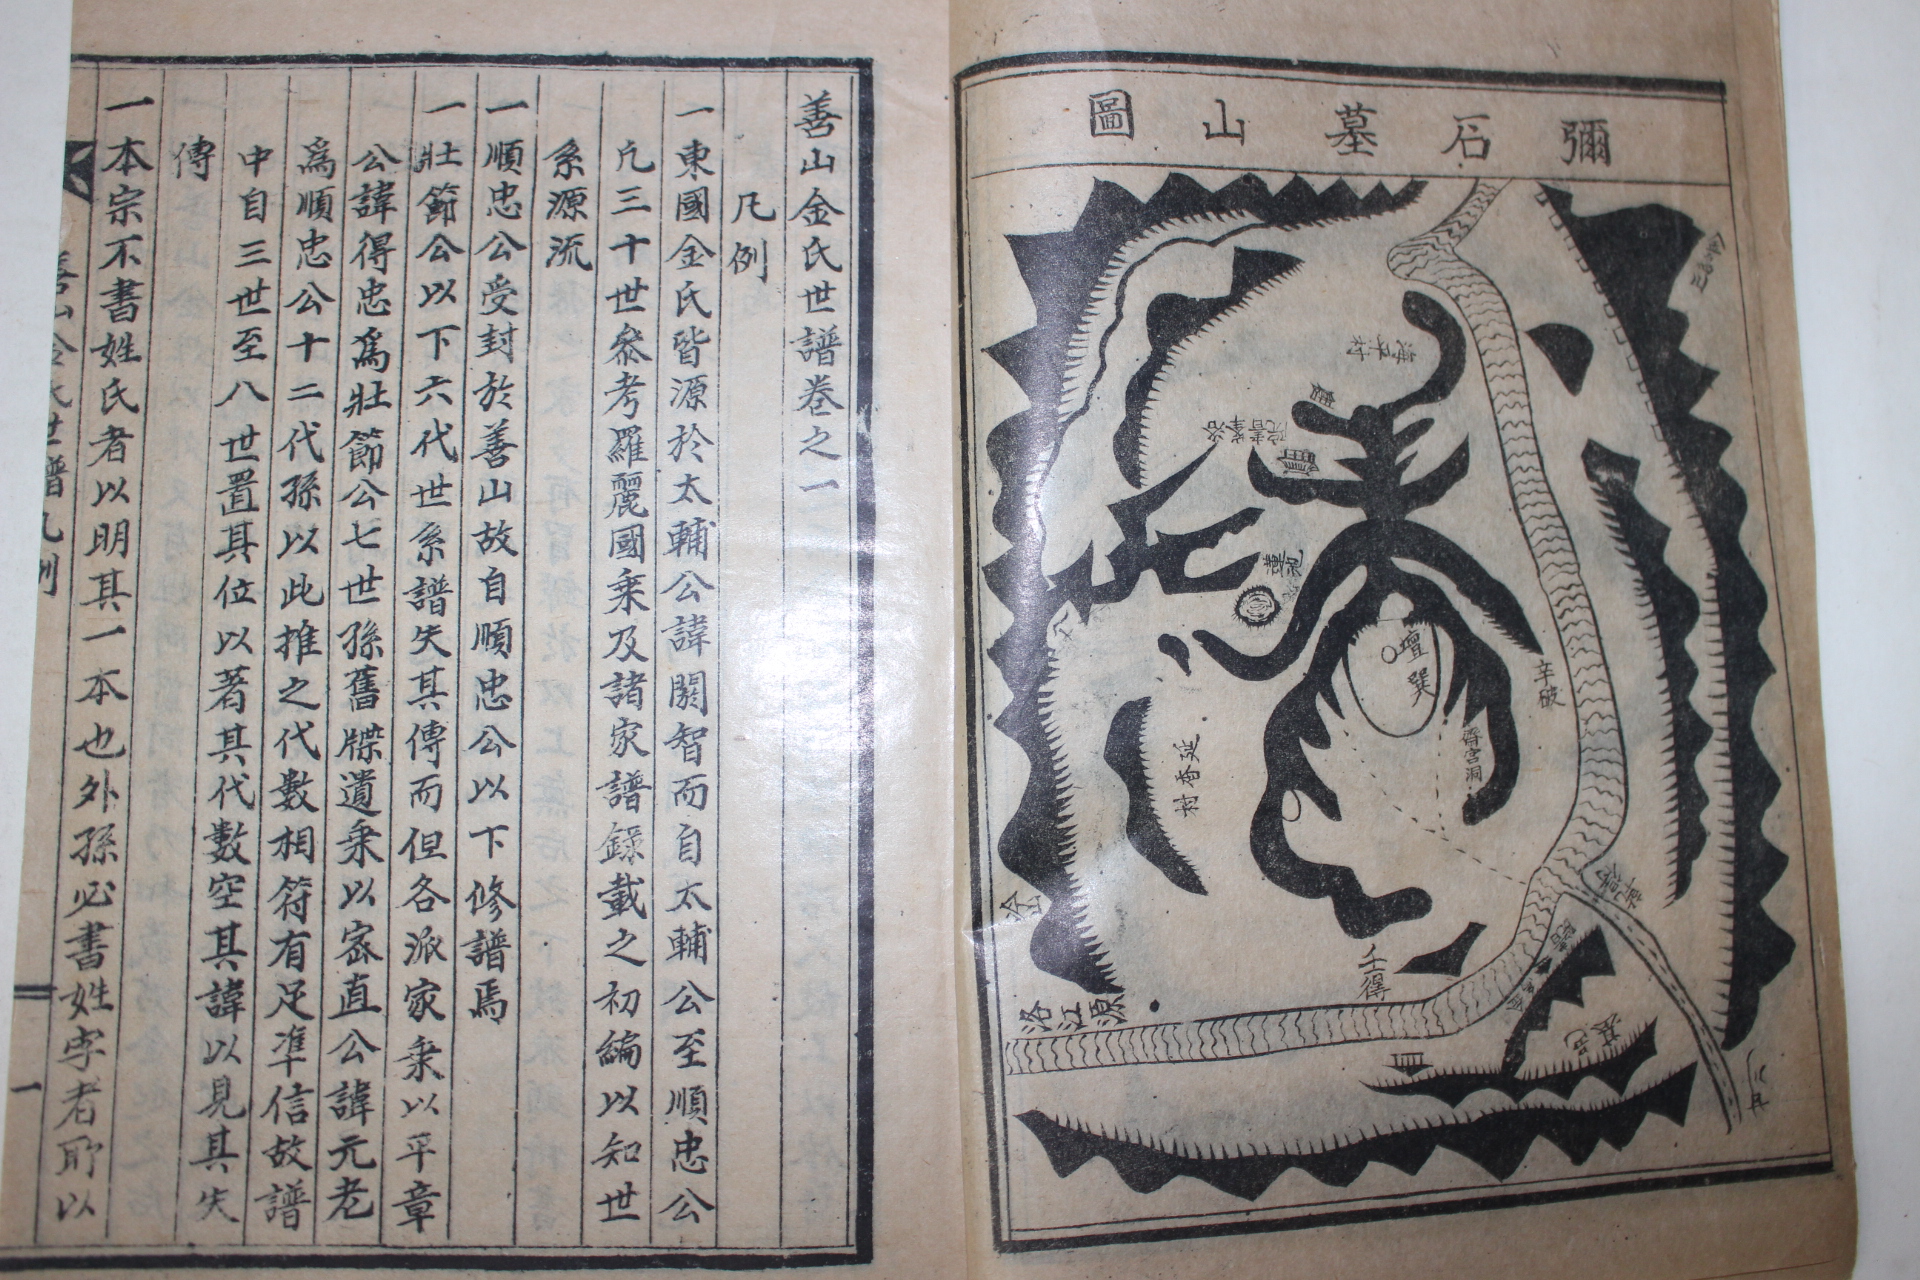 彌石墓山圖
洛江源
壬得
辛破
壇巽
齋宮洞
蓮池
廟
洛峯書院
延香村
善山金氏世譜卷之一
凡例
一東國金氏皆源於太輔公諱閼智而自太輔公至順忠公
凡三十世參考羅麗國乘及諸家譜錄載之初編以知世
系源流
一順忠公受封於善山故自順忠公以下修譜焉
一壯節公以下六代世系譜失其傳而但各派家乘以平章
公諱得忠爲壯節公七世孫舊牒遺乘以密直公諱元老
爲順忠公十二代孫以此推之代數相符有足準信故譜
中自三世至八世置其位以著其代數空其諱以見其失
傳
一本宗不書姓氏者以明其一本也外孫必書姓字者所以
善山金氏世譜凡例
一